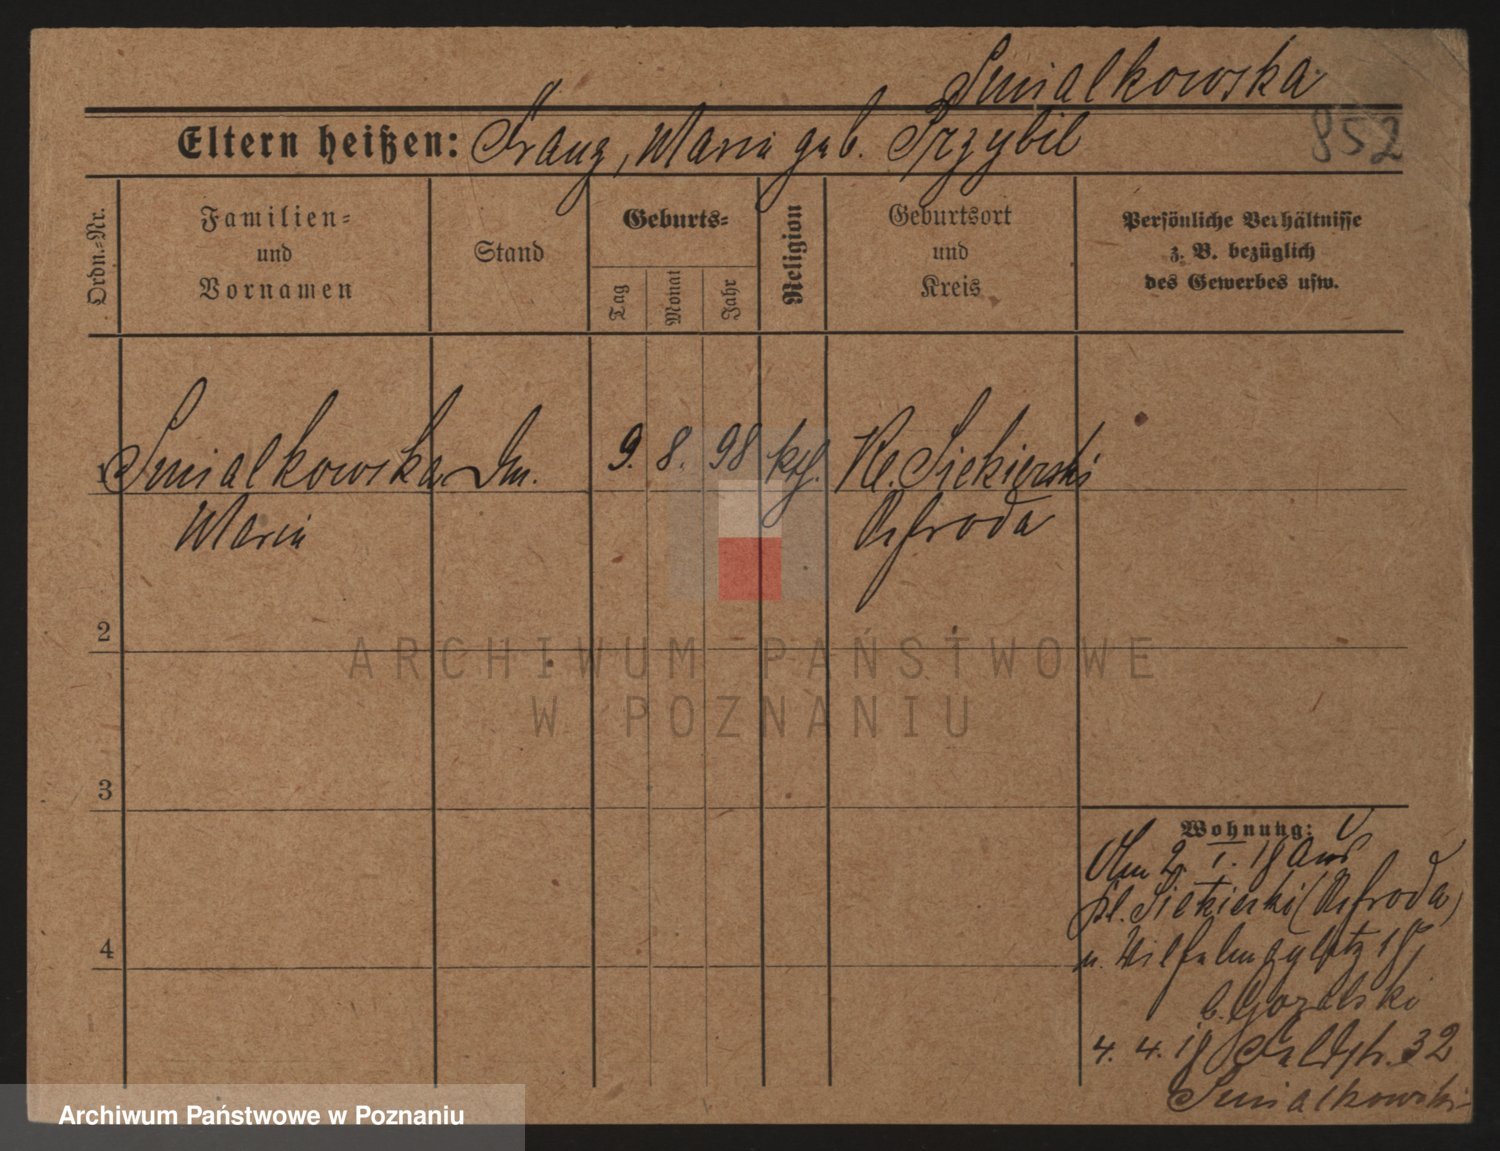 Smialkowska
852
Eltern heißen: Franz, Maria geb. Przybil
Ordn.=Nr.
Familien=
und
Vornamen
Stand
Geburts=
Tag
Monat
Jahr
Religion
Geburtsort
und
Kreis
Persönliche Verhältnisse
z. B. bezüglich
des Gewerbes usw.
1 Smialkowska Dm. 9. 8. 98 kth. Kl. Siekierki
Maria Schroda
2
3
4
Wohnung:
Am 2. I. 18 aus
Kl. Siekierki (Schroda)
n. Wilhelmsplatz 18,
b. Goralski
4. 4. 18 Feldstr. 32
Smialkowski
ARCHIWUM PAŃSTWOWE
W POZNANIU
Archiwum Państwowe w Poznaniu